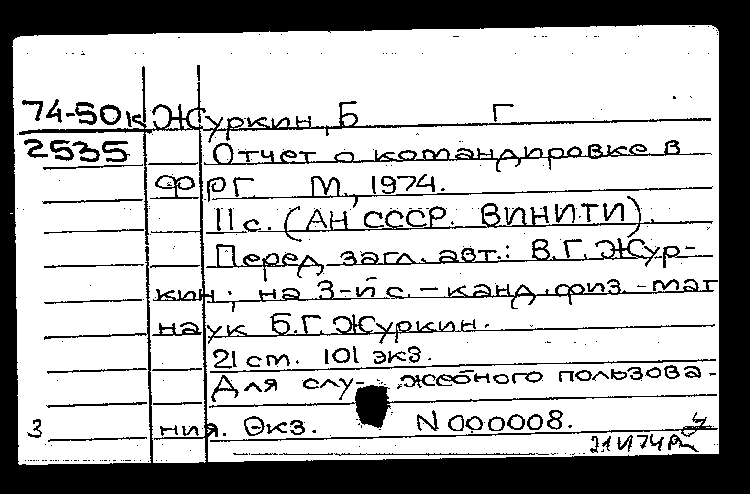 74-50к Журкин, Б Г
2535 Отчет о командировке в
ФРГ М., 1974.
11 с. (АН СССР. ВИНИТИ).
Перед загл. авт.: В.Г. Жур-
кин; на 3-й с. - канд. физ.-мат
наук Б.Г. Журкин.
21 cm. 101 экз.
Для слу- жебного пользова-
3 ния. Экз. N 000008.